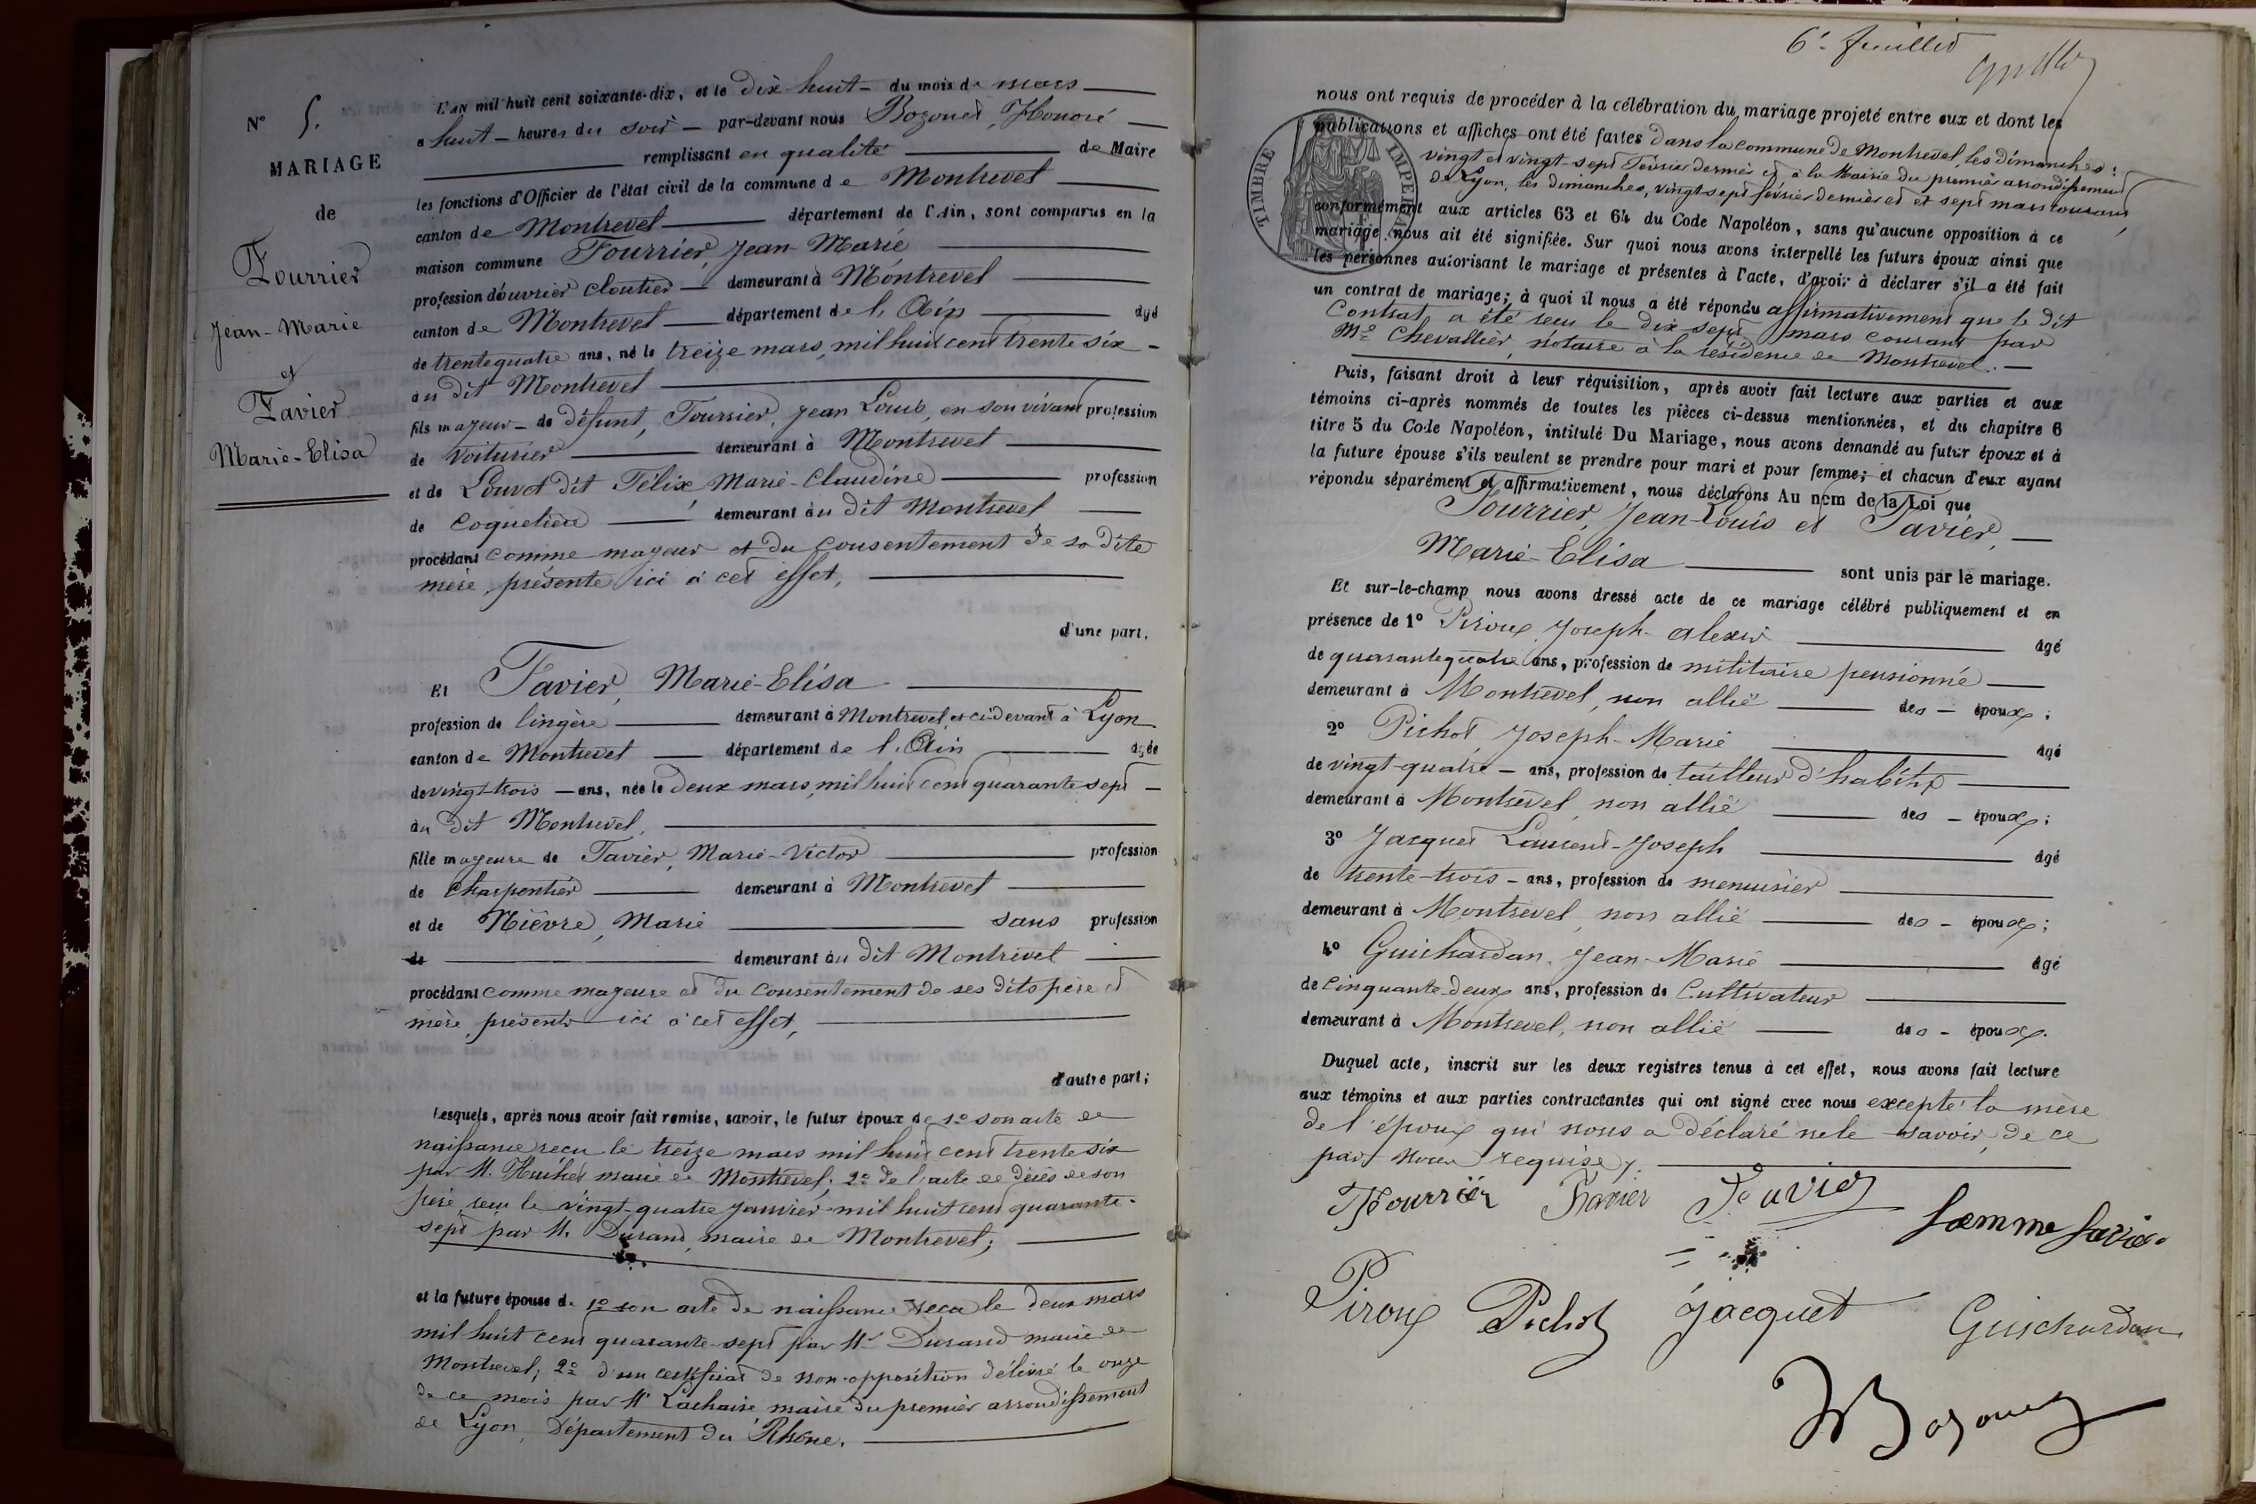 N° 5.
MARIAGE
de
Fourrier
Jean-Marie
et
Favier
Marie-Elisa
L'AN mil huit cent soixante-dix, et le dix huit du mois de mars
a huit heures du soir par-devant nous Bozonet, Honoré
remplissant en qualité de Maire
les fonctions d'Officier de l'état civil de la commune de Montrevel
canton de Montrevel département de l'Ain, sont comparus en la
maison commune Fourrier, Jean-Marie
profession d'ouvrier cloutier demeurant à Montrevel
canton de Montrevel département de l'Ain âgé
de trente quatre ans, né le treize mars, mil huit cent trente six
au dit Montrevel
fils majeur de défunt, Fourrier, Jean Louis, en son vivant profession
de voiturier demeurant à Montrevel
et de Louvet dit Félix, Marie-Claudine profession
de coquetière demeurant au dit Montrevel
procédant comme majeur et du consentement de sa dite
mère, présente ici à cet effet,
d'une part,
Et Favier, Marie-Elisa
profession de lingère demeurant à Montrevel et ci-devant à Lyon
canton de Montrevel département de l'Ain âgée
de vingt-trois ans, née le deux mars, mil huit cent quarante sept
au dit Montrevel,
fille majeure de Favier, Marie-Victor profession
de charpentier demeurant à Montrevel
et de Nièvre, Marie sans profession
de demeurant au dit Montrevel
procédant comme majeure et du consentement de ses dits père et
mère, présents ici à cet effet,
d'autre part;
Lesquels, après nous avoir fait remise, savoir, le futur époux de 1° son acte de
naissance reçu le treize mars mil huit cent trente six
par M. maire de Montrevel; 2° de l'acte de décès de son
père, reçu le vingt-quatre janvier mil huit cent quarante-
sept par M. Durand, maire de Montrevel;
et la future épouse de 1° son acte de naissance reçu le deux mars
mil huit cent quarante-sept par Mr Durand maire de
Montrevel; 2° d'un certificat de non-opposition délivré le onze
de ce mois par Mr Lachaise maire du premier arrondissement
de Lyon, Département du Rhône.
6e feuillet
TIMBRE IMPERIAL
nous ont requis de procéder à la célébration du mariage projeté entre eux et dont les
publications et affiches ont été faites dans la commune de Montrevel, les dimanches:
vingt et vingt-sept Février dernier et à la Mairie du premier arrondissement
de Lyon, les dimanches, vingt sept février dernier et et sept mars courant,
conformément aux articles 63 et 64 du Code Napoléon, sans qu'aucune opposition à ce
mariage nous ait été signifiée. Sur quoi nous avons interpellé les futurs époux ainsi que
les personnes autorisant le mariage et présentes à l'acte, d'avoir à déclarer s'il a été fait
un contrat de mariage; à quoi il nous a été répondu affirmativement que le dit
Contrat a été reçu le dix sept mars courant par
Me Chevallier, notaire à la résidence de Montrevel.
Puis, faisant droit à leur réquisition, après avoir fait lecture aux parties et aux
témoins ci-après nommés de toutes les pièces ci-dessus mentionnées, et du chapitre 6
titre 5 du Code Napoléon, intitulé Du Mariage, nous avons demandé au futur époux et à
la future épouse s'ils veulent se prendre pour mari et pour femme; et chacun d'eux ayant
répondu séparément et affirmativement, nous déclarons Au nom de la Loi que
Fourrier, Jean-Louis et Favier,
Marie-Elisa sont unis par le mariage.
Et sur-le-champ nous avons dressé acte de ce mariage célébré publiquement et en
présence de 1° Piroux Joseph-Alexis âgé
de quarante quatre ans, profession de militaire pensionné
demeurant à Montrevel, non allié des époux;
2° Pichot, Joseph-Marie âgé
de vingt-quatre ans, profession de tailleur d'habits
demeurant à Montrevel, non allié des époux;
3° Jacquet Laurent-Joseph âgé
de trente-trois ans, profession de menuisier
demeurant à Montrevel, non allié des époux;
4° Guichardan, Jean-Marie âgé
de cinquante-deux ans, profession de Cultivateur
demeurant à Montrevel, non allié des époux.
Duquel acte, inscrit sur les deux registres tenus à cet effet, nous avons fait lecture
aux témoins et aux parties contractantes qui ont signé avec nous excepté la mère
de l'époux qui nous a déclaré ne le savoir, de ce
par nous requise.
Fourriér Favier Favier fæmme favier
Piroux Pichot Jacquet Guichardan
HBozonet